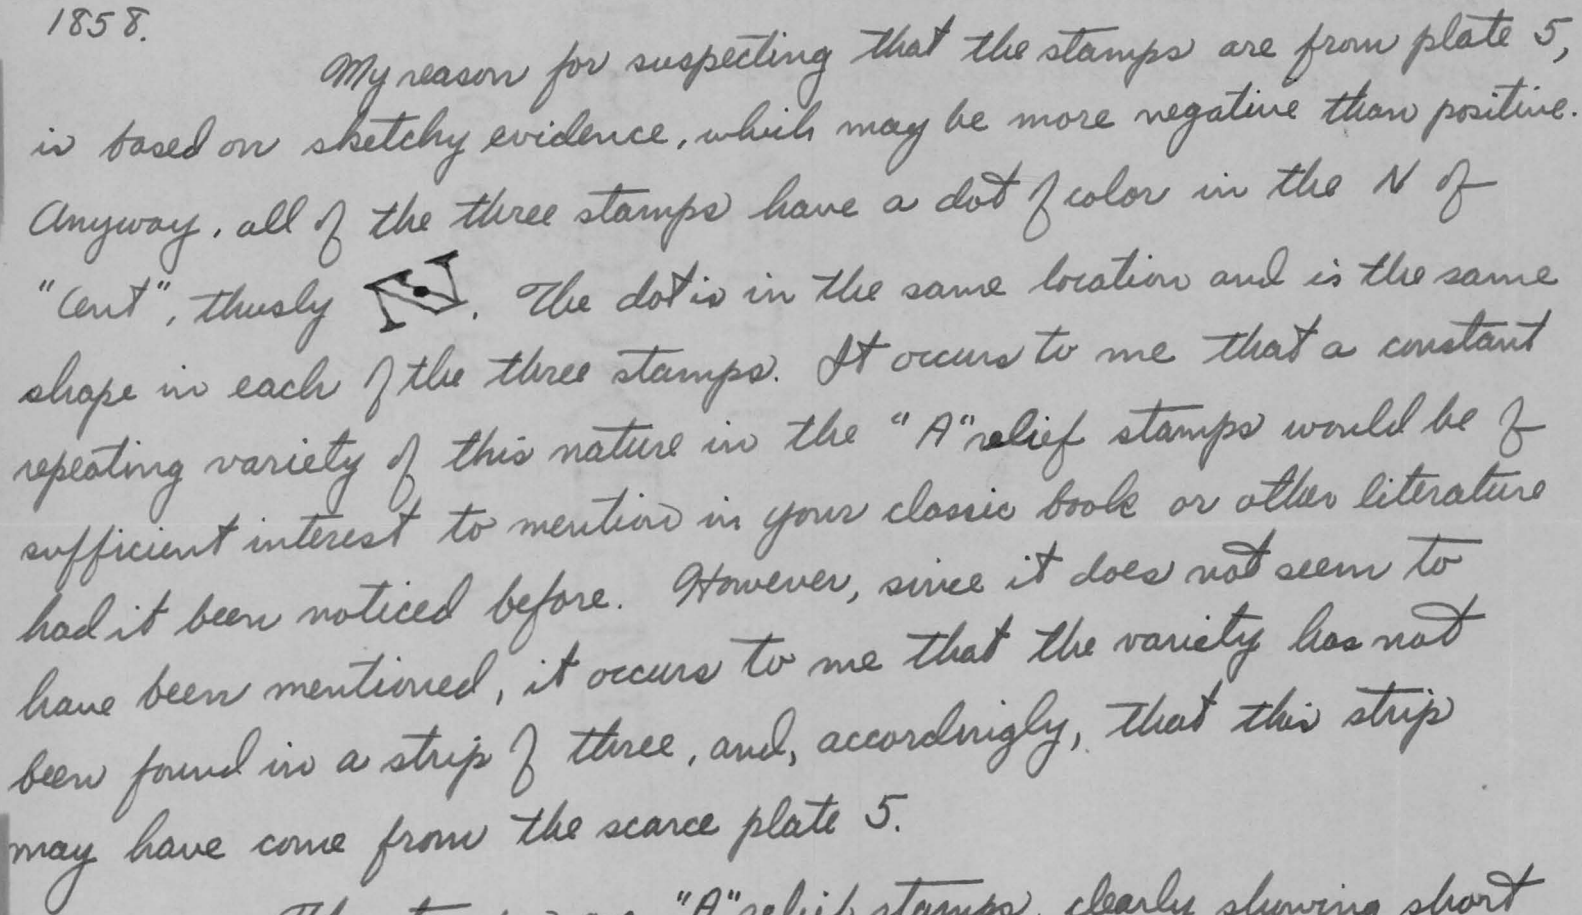 1858.
My reason for suspecting that the stamps are from plate 5,
is based on sketchy evidence, which may be more negative than positive.
Anyway, all of the three stamps have a dot of color in the N of
"Cent", thusly N. The dot is in the same location and is the same
shape in each of the three stamps. It occurs to me that a constant
repeating variety of this nature in the "A" relief stamps would be of
sufficient interest to mention in your classic book or other literature
had it been noticed before. However, since it does not seem to
have been mentioned, it occurs to me that the variety has not
been found in a strip of three, and, accordingly, that this strip
may have come from the scarce plate 5.
"A" relief stamps, clearly showing short